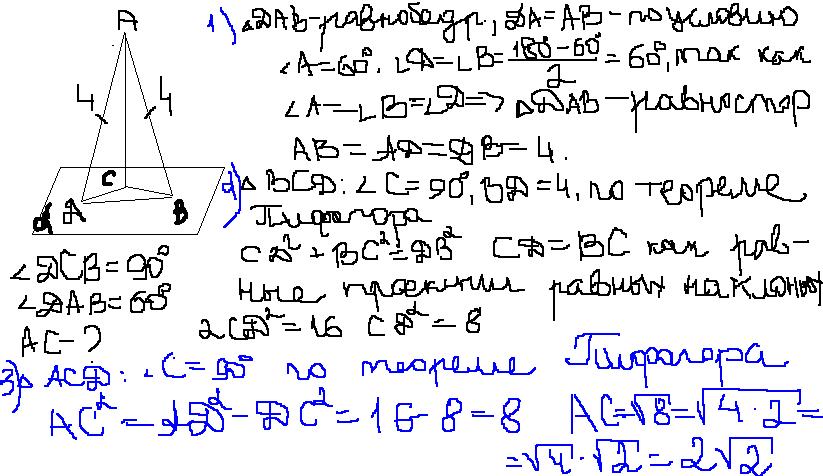 A
4 4
C
α Д В
∠DCB=90°
∠DAB=60°
AC-?
1) △DAB-равнобедр, DA=AB-по условию
∠A=60°. ∠D=∠B=(180°-60°)/2=60°, так как
∠A=∠B=∠D=>△DAB-равностор
AB=AD=DB=4.
2) △BCD: ∠C=90°, BD=4, по теореме
Пифагора
CD²+BC²=DB² CD=BC как рав-
ные проекции равных наклонных
2CD²=16 CD²=8
3) △ACD: ∠C=90° по теореме Пифагора
AC²=AD²-DC²=16-8=8 AC=√8=√4·2=
=√4·√2=2√2